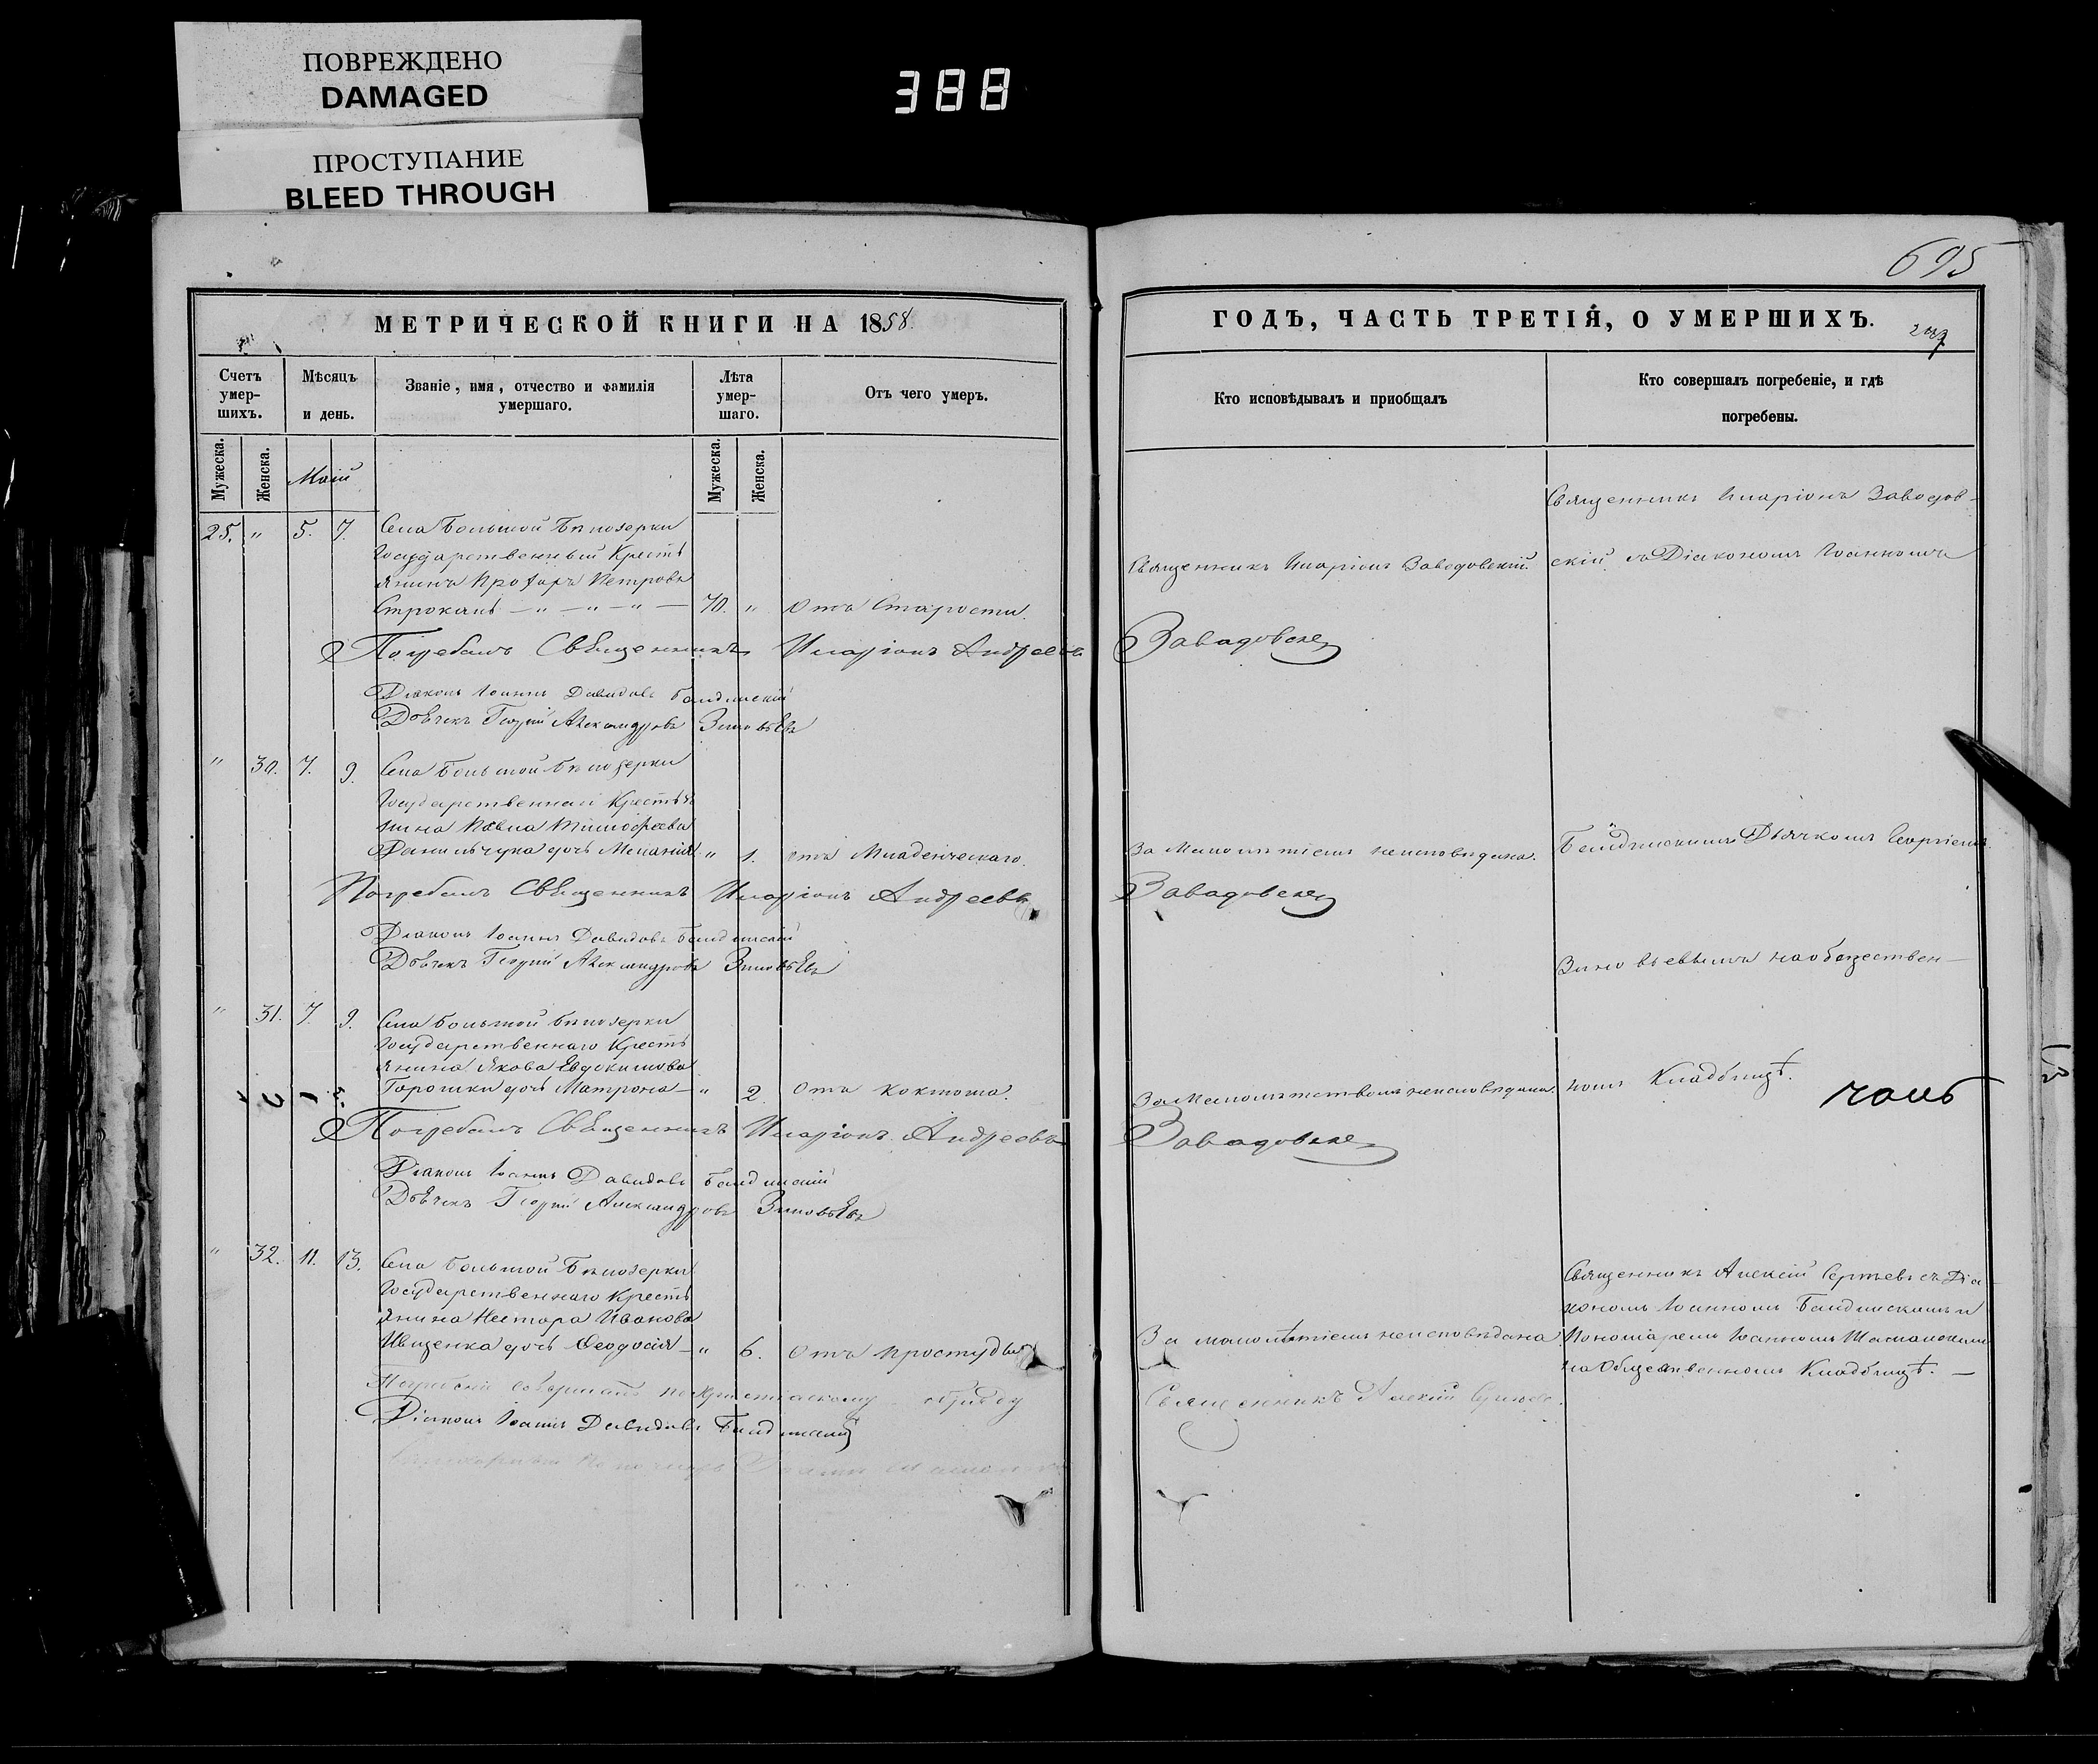 ПОВРЕЖДЕНО
DAMAGED
ПРОСТУПАНИЕ
BLEED THROUGH
388
МЕТРИЧЕСКОЙ КНИГИ НА 1858.
Счетъ умер-шихъ.
Мѣсяцъ и день.
Званіе, имя, отчество и фамилія умершаго.
Лѣта умер-шаго.
Отъ чего умеръ.
Мужеска.
Женска.
Маій
Мужеска.
Женска.
25. " 5. 7. Села Большой Бѣлозерки
Государственный Кресть
янинъ Прохоръ Петровъ
Строкань — " — " — " — 70. " Отъ Старости.
Погребалъ Священникъ Иларіонъ Андреевъ
Діаконъ Іоаннъ Давидовъ
Дьячекъ Георгій Александровъ Зиновьевъ
" 30. 7. 9. Села Большой Бѣлозерки
Государственнаго Крестья
нина Павла Тимофеева
Данильчука дочь Меланія " 1. отъ Младенческаго.
Погребалъ Священникъ Иларіонъ Андреевъ
Діаконъ Іоаннъ Давидовъ
Дьячекъ Георгій Александровъ Зиновьевъ
" 31. 7. 9. Села Большой Бѣлозерки
Государственнаго Кресть
янина Якова Евдокимова
Горошки дочь Матрона — " 2. Отъ коклюша.
Погребалъ Священникъ Иларіонъ Андреевъ
Діаконъ Іоаннъ Давидовъ
Дьячекъ Георгій Александровъ Зиновьевъ
" 32. 11. 13. Села Большой Бѣлозерки
Государственнаго Кресть
янина Нестора Иванова
Ивщенка дочь Ѳеодосія — " 6. Отъ простуды
Погребеніе совершалъ по христіанскому обряду
Діаконъ Іоаннъ Давидовъ
695
ГОДЪ, ЧАСТЬ ТРЕТІЯ, О УМЕРШИХЪ.
Кто исповѣдывалъ и пріобщалъ
Кто совершалъ погребеніе, и гдѣ погребены.
Священникъ Иларіонъ Заводов-
Священникъ Иларіонъ Заводовскій.
скій съ Діакономъ Іоанномъ
Завадовске
За малолѣтіемъ неисповѣдана.
Дьячкомъ Георгіемъ
Завадовске
Зиновьевымъ на обществен—
За малолѣтствомъ неисповѣдана.
номъ Кладбищѣ.
Завадовске
Священникъ Алексій Сергѣевъ съ Діа
кономъ Іоанномъ
За малолѣтіемъ неисповѣдана
Пономаремъ Іоанномъ
на Общественномъ Кладбищѣ. —
Священникъ Алексій